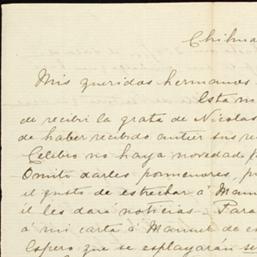 Chihua
Mis queridos hermanos
Esta ma
de recibir la grata de Nicolas
de haber recibido antier sus re
Celebro no haya novedad p
Omito darles pomenores, p
el gusto de estrechar á Manu
él les dará noticias. Para
á mi carta á Manuel de es
Espero que se esplayarán se